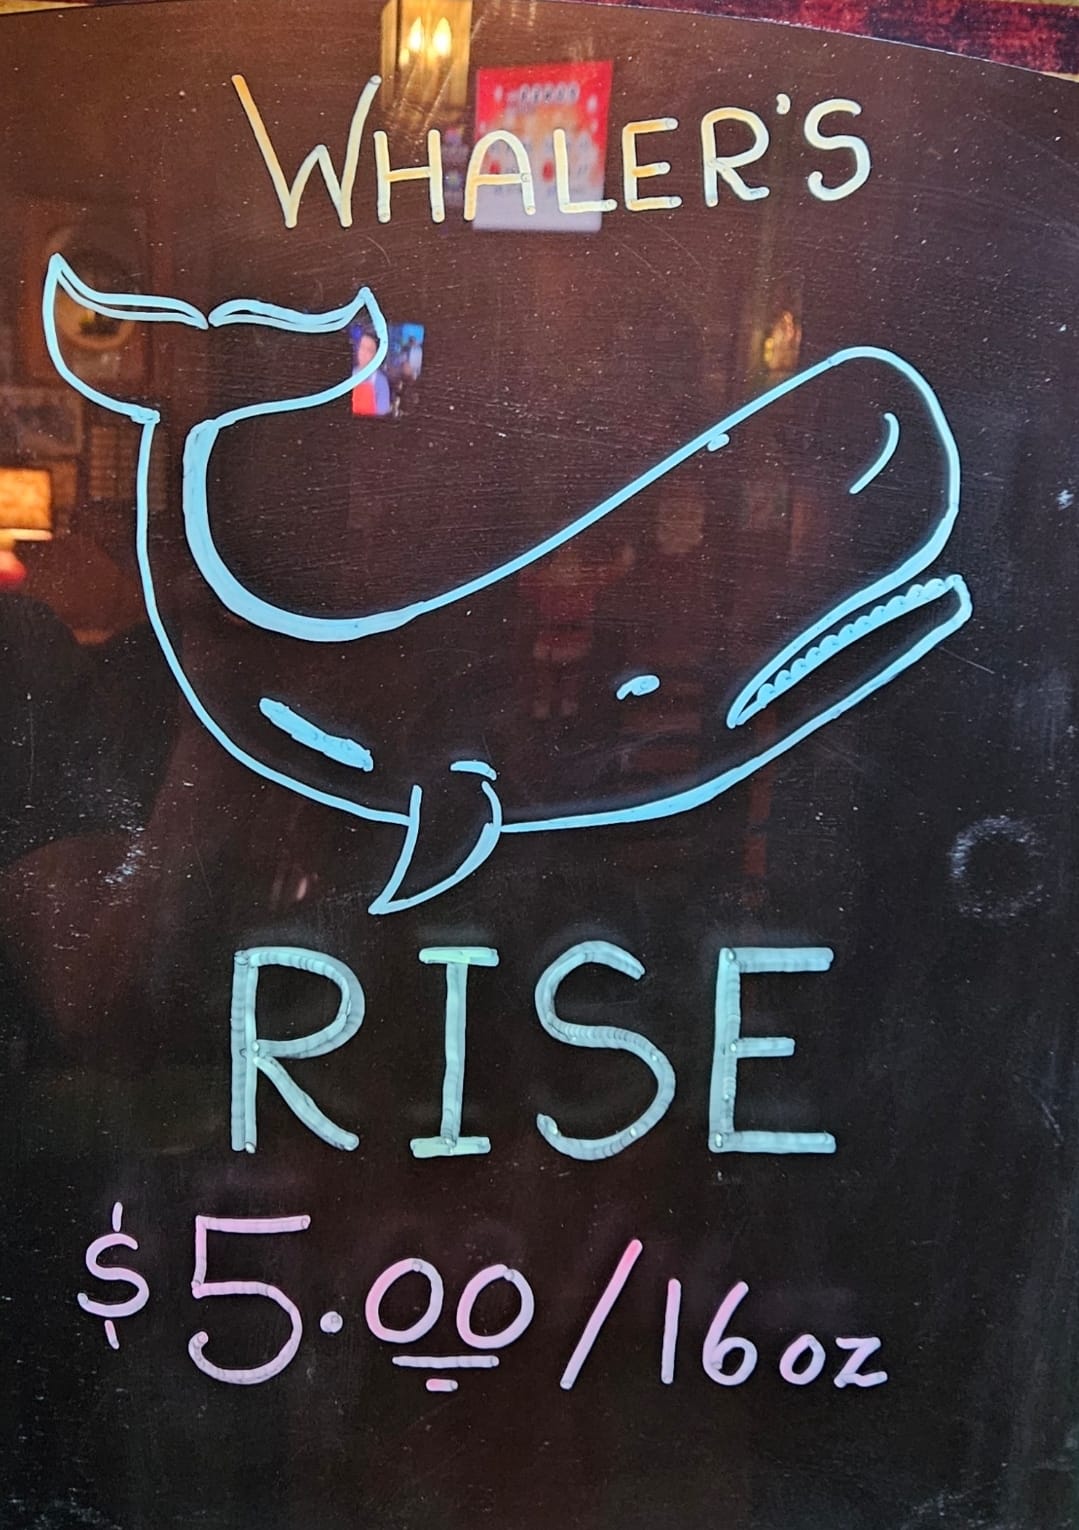 WHALER'S
RISE
$5.00/16oz